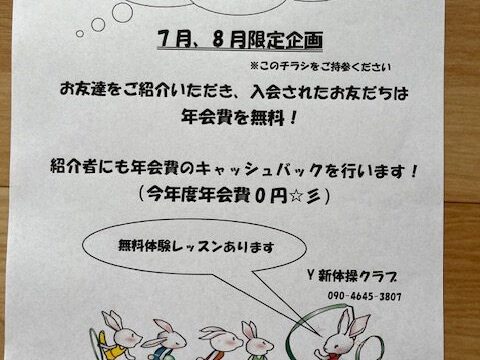 7月、8月限定企画
※このチラシをご持参ください
お友達をご紹介いただき、入会されたお友だちは
年会費を無料！
紹介者にも年会費のキャッシュバックを行います！
（今年度年会費０円☆彡）
無料体験レッスンあります
Y新体操クラブ
090-4645-3807